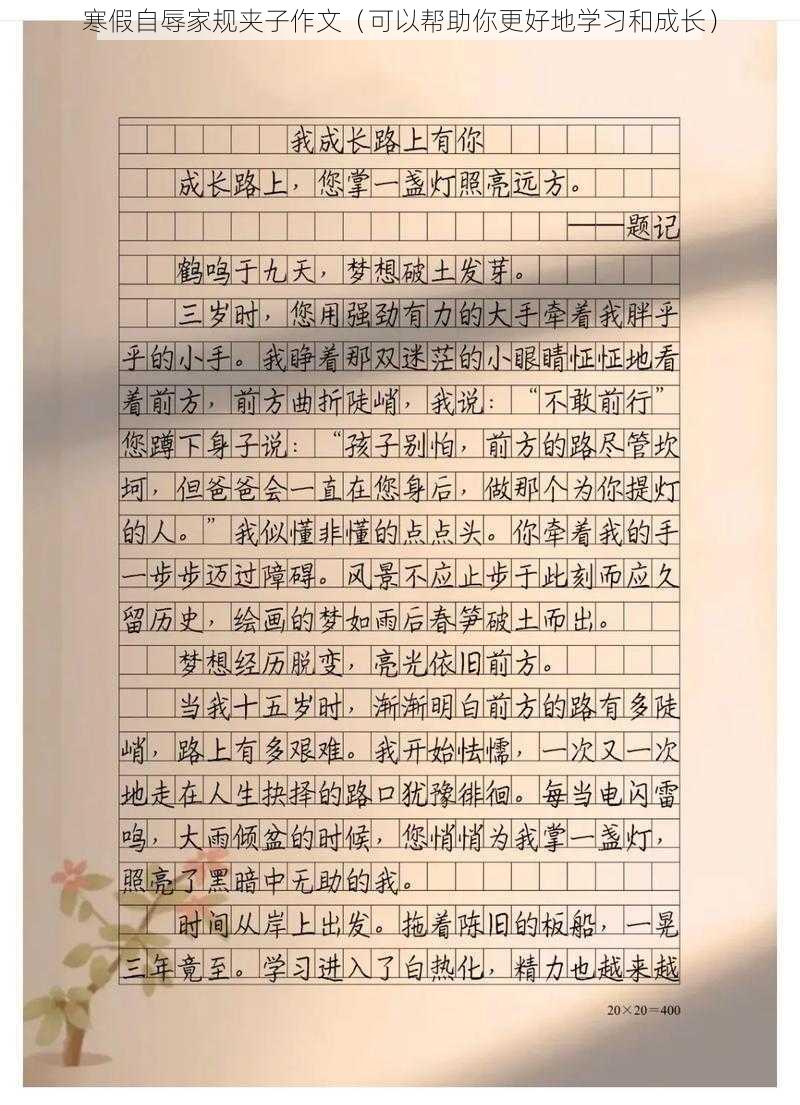 寒假自辱家规夹子作文（可以帮助你更好地学习和成长）
我成长路上有你
成长路上，您掌一盏灯照亮远方。
——题记
鹤鸣于九天，梦想破土发芽。
三岁时，您用强劲有力的大手牵着我胖乎
乎的小手。我睁着那双迷茫的小眼睛怔怔地看
着前方，前方曲折陡峭，我说：“不敢前行”
您蹲下身子说：“孩子别怕，前方的路尽管坎
坷，但爸爸会一直在您身后，做那个为你提灯
的人。”我似懂非懂的点点头。你牵着我的手
一步步迈过障碍。风景不应止步于此刻而应久
留历史，绘画的梦如雨后春笋破土而出。
梦想经历脱变，亮光依旧前方。
当我十五岁时，渐渐明白前方的路有多陡
峭，路上有多艰难。我开始怯懦，一次又一次
地走在人生抉择的路口犹豫徘徊。每当电闪雷
鸣，大雨倾盆的时候，您悄悄为我掌一盏灯，
照亮了黑暗中无助的我。
时间从岸上出发。拖着陈旧的板船，一晃
三年竟至。学习进入了白热化，精力也越来越
20×20=400